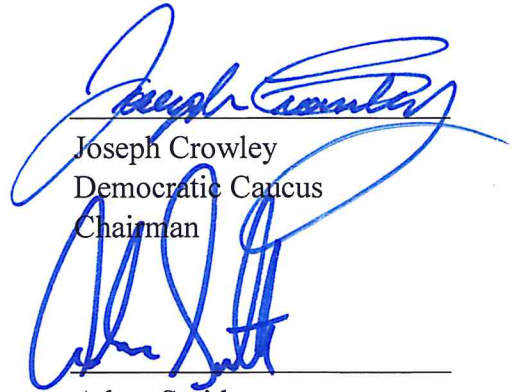 Joseph Crowley
Joseph Crowley
Democratic Caucus
Chairman
Adam Smith